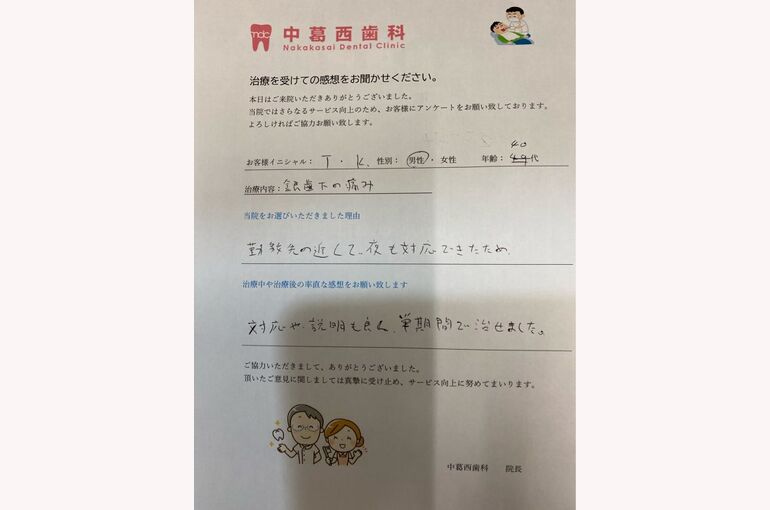 ndc 中葛西歯科
Nakakasai Dental Clinic
治療を受けての感想をお聞かせください。
本日はご来院いただきありがとうございました。
当院ではさらなるサービス向上のため、お客様にアンケートをお願い致しております。
よろしければご協力お願い致します。
40
お客様イニシャル： T ・ K. 性別： 男性 ・ 女性 年齢： 代
治療内容：銀歯下の痛み
当院をお選びいただきました理由
勤務先の近くて、夜も対応できたため.
治療中や治療後の率直な感想をお願い致します
対応や、説明も良く、単期間で治せました。
ご協力いただきまして、ありがとうございました。
頂いたご意見に関しましては真摯に受け止め、サービス向上に努めてまいります。
中葛西歯科 院長